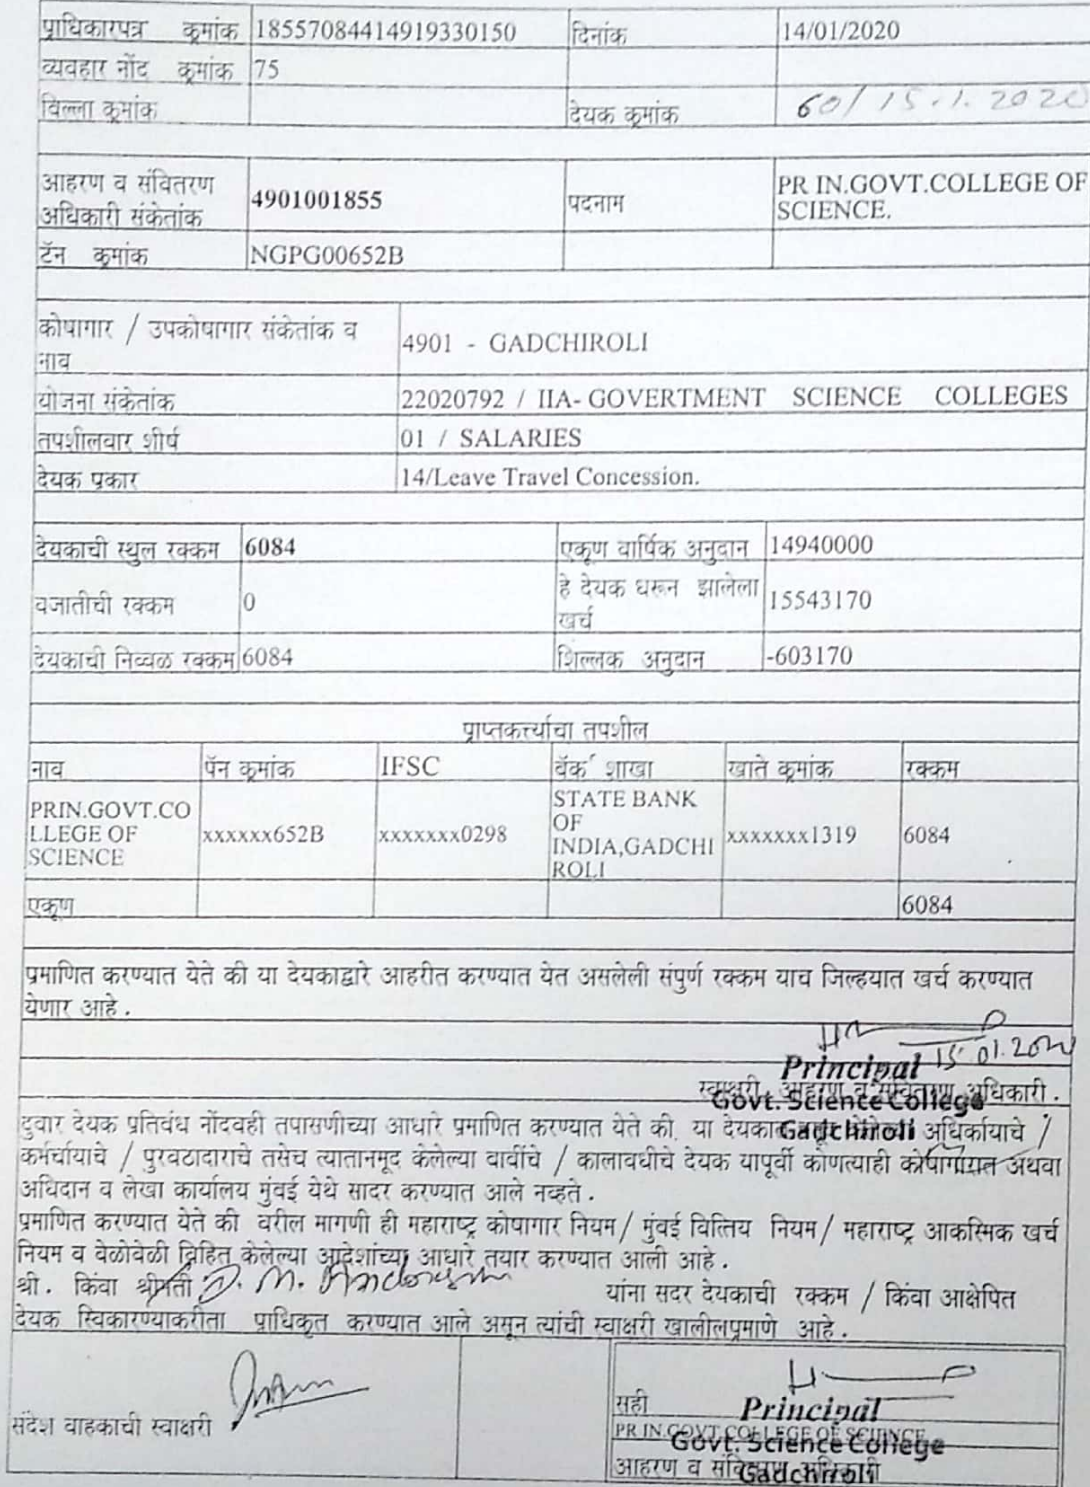 प्राधिकारपत्र क्रमांक 18557084414919330150 दिनांक 14/01/2020
व्यवहार नोंद क्रमांक 75
विल्ला क्रमांक देयक क्रमांक 60/15.1.2020
आहरण व संवितरण
अधिकारी संकेतांक 4901001855 पदनाम PR IN.GOVT.COLLEGE OF
SCIENCE.
टॅन क्रमांक NGPG00652B
कोषागार / उपकोषागार संकेतांक व
नाव 4901 - GADCHIROLI
योजना संकेतांक 22020792 / IIA- GOVERTMENT SCIENCE COLLEGES
तपशीलवार शीर्ष 01 / SALARIES
देयक प्रकार 14/Leave Travel Concession.
देयकाची स्थुल रक्कम 6084 एकूण वार्षिक अनुदान 14940000
वजातीची रक्कम 0 हे देयक धरून झालेला
खर्च 15543170
देयकाची निव्वळ रक्कम 6084 शिल्लक अनुदान -603170
प्राप्तकर्त्याचा तपशील
नाव पॅन क्रमांक IFSC बॅक शाखा खाते क्रमांक रक्कम
PRIN.GOVT.CO
LLEGE OF
SCIENCE xxxxxx652B xxxxxxx0298 STATE BANK
OF
INDIA,GADCHI
ROLI xxxxxxx1319 6084
एकूण 6084
प्रमाणित करण्यात येते की या देयकाद्वारे आहरीत करण्यात येत असलेली संपुर्ण रक्कम याच जिल्हयात खर्च करण्यात
येणार आहे.
15.01.2020
Principal
स्वाक्षरी, आहरण व संवितरण अधिकारी.
Govt. Science College
Gadchiroli
दुवार देयक प्रतिवंध नोंदवही तपासणीच्या आधारे प्रमाणित करण्यात येते की, या देयकात अधिकायाचे /
कर्मचायाचे / पुरवठादाराचे तसेच त्यातानमूद केलेल्या वावींचे / कालावधीचे देयक यापूर्वी कोणत्याही कोषागारात अथवा
अधिदान व लेखा कार्यालय मुंवई येथे सादर करण्यात आले नव्हते.
प्रमाणित करण्यात येते की वरील मागणी ही महाराष्ट्र कोषागार नियम/ मुंवई वित्तिय नियम/ महाराष्ट्र आकस्मिक खर्च
नियम व वेळोवेळी विहित केलेल्या आदेशांच्या आधारे तयार करण्यात आली आहे.
श्री. किंवा श्रीमती D. M. यांना सदर देयकाची रक्कम / किंवा आक्षेपित
देयक स्विकारण्याकरीता प्राधिकृत करण्यात आले असून त्यांची स्वाक्षरी खालीलप्रमाणे आहे.
संदेश वाहकाची स्वाक्षरी
सही
Principal
PR IN.GOVT.COLLEGE OF SCIENCE
Govt. Science College
आहरण व संवितरण अधिकारी
Gadchiroli